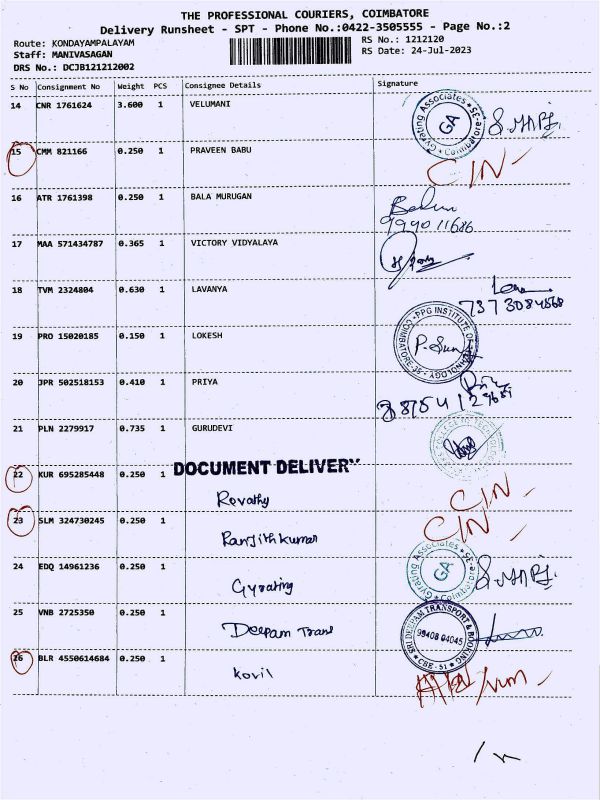 THE PROFESSIONAL COURIERS, COIMBATORE
Delivery Runsheet - SPT - Phone No.:0422-3505555 - Page No.:2
Route: KONDAYAMPALAYAM RS No.: 1212120
Staff: MANIVASAGAN RS Date: 24-Jul-2023
DRS No.: DCJB121212002
S No Consignment No Weight PCS Consignee Details Signature
14 CNR 1761624 3.600 1 VELUMANI
Gyrating Associates Coimbatore-35 GA
15 CMM 821166 0.250 1 PRAVEEN BABU
CIN -
16 ATR 1761398 0.250 1 BALA MURUGAN
17 MAA 571434787 0.365 1 VICTORY VIDYALAYA
18 TVM 2324804 0.630 1 LAVANYA
7373084568
19 PRO 15020185 0.150 1 LOKESH
PPG INSTITUTE OF COIMBATORE-35
20 JPR 502518153 0.410 1 PRIYA
21 PLN 2279917 0.735 1 GURUDEVI
22 KUR 695285448 0.250 1 DOCUMENT DELIVERY
Revathy CIN -
23 SLM 324730245 0.250 1 Ranjithkumar CIN -
24 EDQ 14961236 0.250 1 Gyrating
Gyrating Associates Coimbatore-35 GA
25 VNB 2725350 0.250 1 Deepam Trans
SRI DEEPAM TRANSPORT & BOOKING CBE - 51 98408 04045
26 BLR 4550614684 0.250 1 Kovil